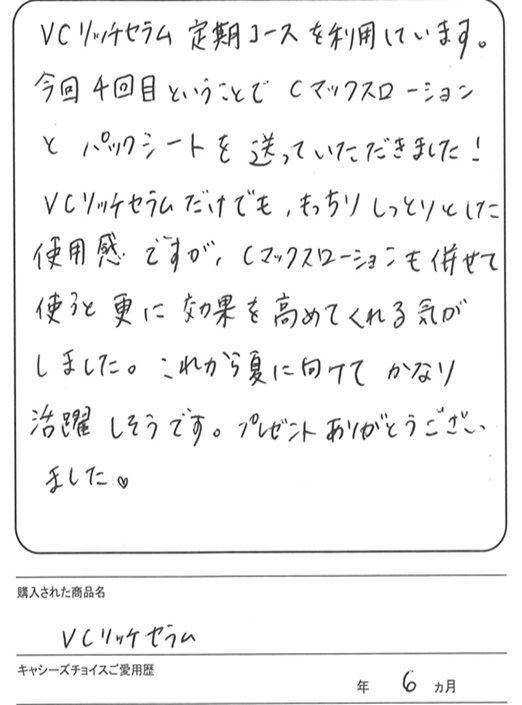 VCリッチセラム 定期コースを利用しています。
今回4回目ということで Cマックスローション
と パックシートを 送っていただきました!
VCリッチセラムだけでも、もっちりしっとりとした
使用感ですが、Cマックスローションも併せて
使うと更に効果を高めてくれる気が
しました。これから夏に向けて かなり
活躍しそうです。プレゼントありがとうござい
ました♡
購入された商品名
VCリッチセラム
キャシーズチョイスご愛用歴
年 6 ヵ月